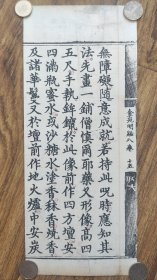 無障礙隨意成就若持此呪時應知其
法先畫一鋪僧慎爾耶藥叉形像高四
五尺手執鉾鑹於此像前作四方壇安
四滿瓶蜜水或沙糖水塗香粖香燒香
及諸華鬘又於壇前作地火爐中安炭
金光明經八卷 十五